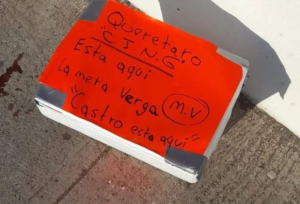 Queretaro
"C J N G"
Esta aqui
La meta Verga
M.V
"Castro esta aqui"